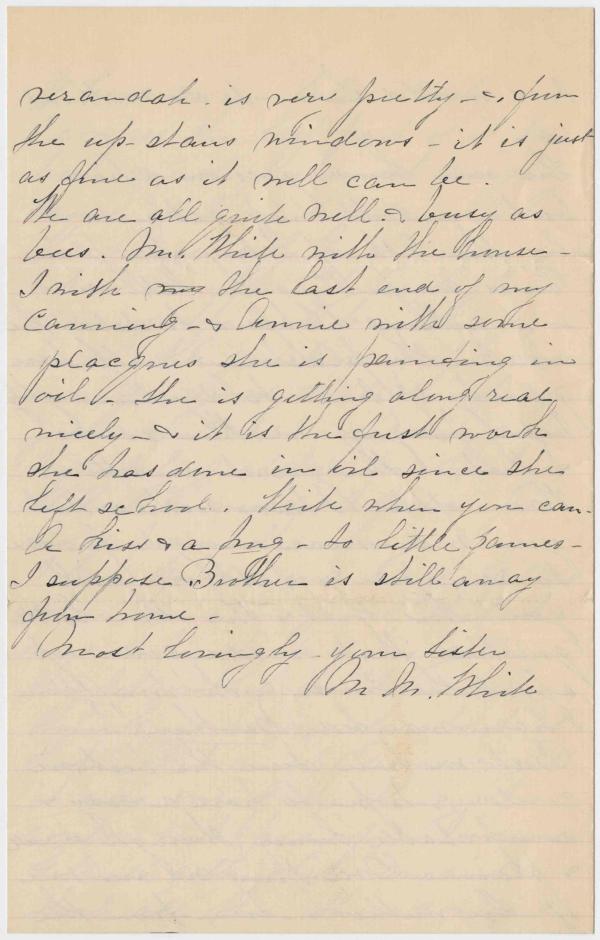 verandah is very pretty - &, from
the up-stairs windows - it is just
as fine as it well can be.
We are all quite well. & busy as
bees. Mr. White with the house -
I with my the last end of my
canning - & Annie with some
placques she is painting in
oil - She is getting along real
nicely - & it is the first work
she has done in oil since she
left school. Write when you can -
A kiss & a hug - to little James -
I suppose Brother is still away
from home -
Most lovingly your sister
M. M. White